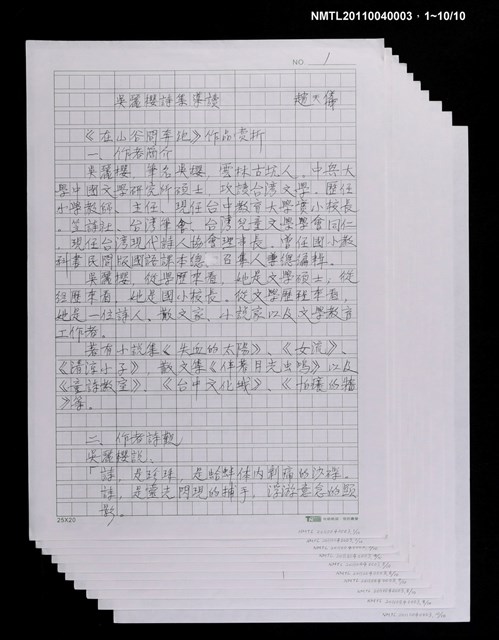 NMTL20110040003，1~10/10
NO. 1
吳麗櫻詩集導讀　趙天儀
《在山谷間李地》作品賞析
一、作者簡介
吳麗櫻，筆名吳櫻，雲林古坑人。中興大
學中國文學研究所碩士，攻讀台灣文學。歷任
小學教師、主任，現任台中教育大學實小校長。
笠詩社、台灣筆會、台灣兒童文學學會同仁，
現任台灣現代詩人協會理事長。曾任國小教
科書民間版國語課本總召集人兼總編輯。
吳麗櫻，從學歷來看，她是文學碩士；從
經歷來看，她是國小校長。從文學歷程來看，
她是一位詩人、散文家、小說家以及文學教育
工作者。
著有小說集《失血的太陽》、《女流》、
《清淳小子》，散文集《伴著月光虫鳴》以及
《童詩教室》、《台中文化城》、《怕癢的牆
》等。
二、作者詩觀
吳麗櫻說：
「詩，是珍珠，是蛤蚌体內刺痛的沙礫。
詩，是靈光閃現的捕手，浮游意念的顯
影。
25X20